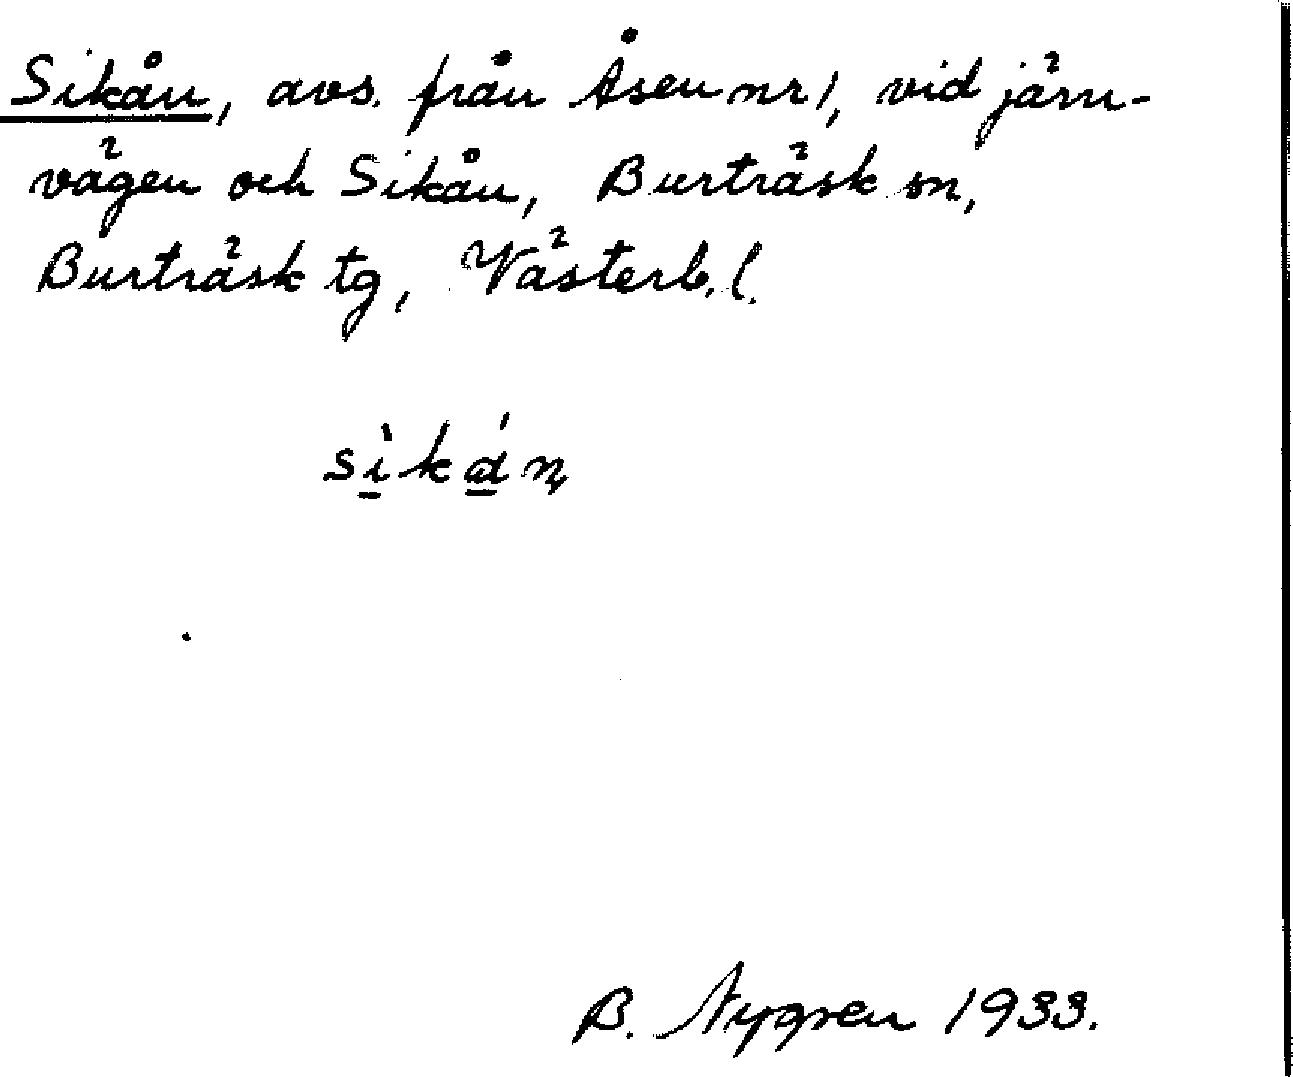 Sikån, avs. från Åsen nr 1, vid järn-
vägen och Sikån, Burträsk sn,
Burträsk tg, Västerb. l.
B. Nygren 1933.